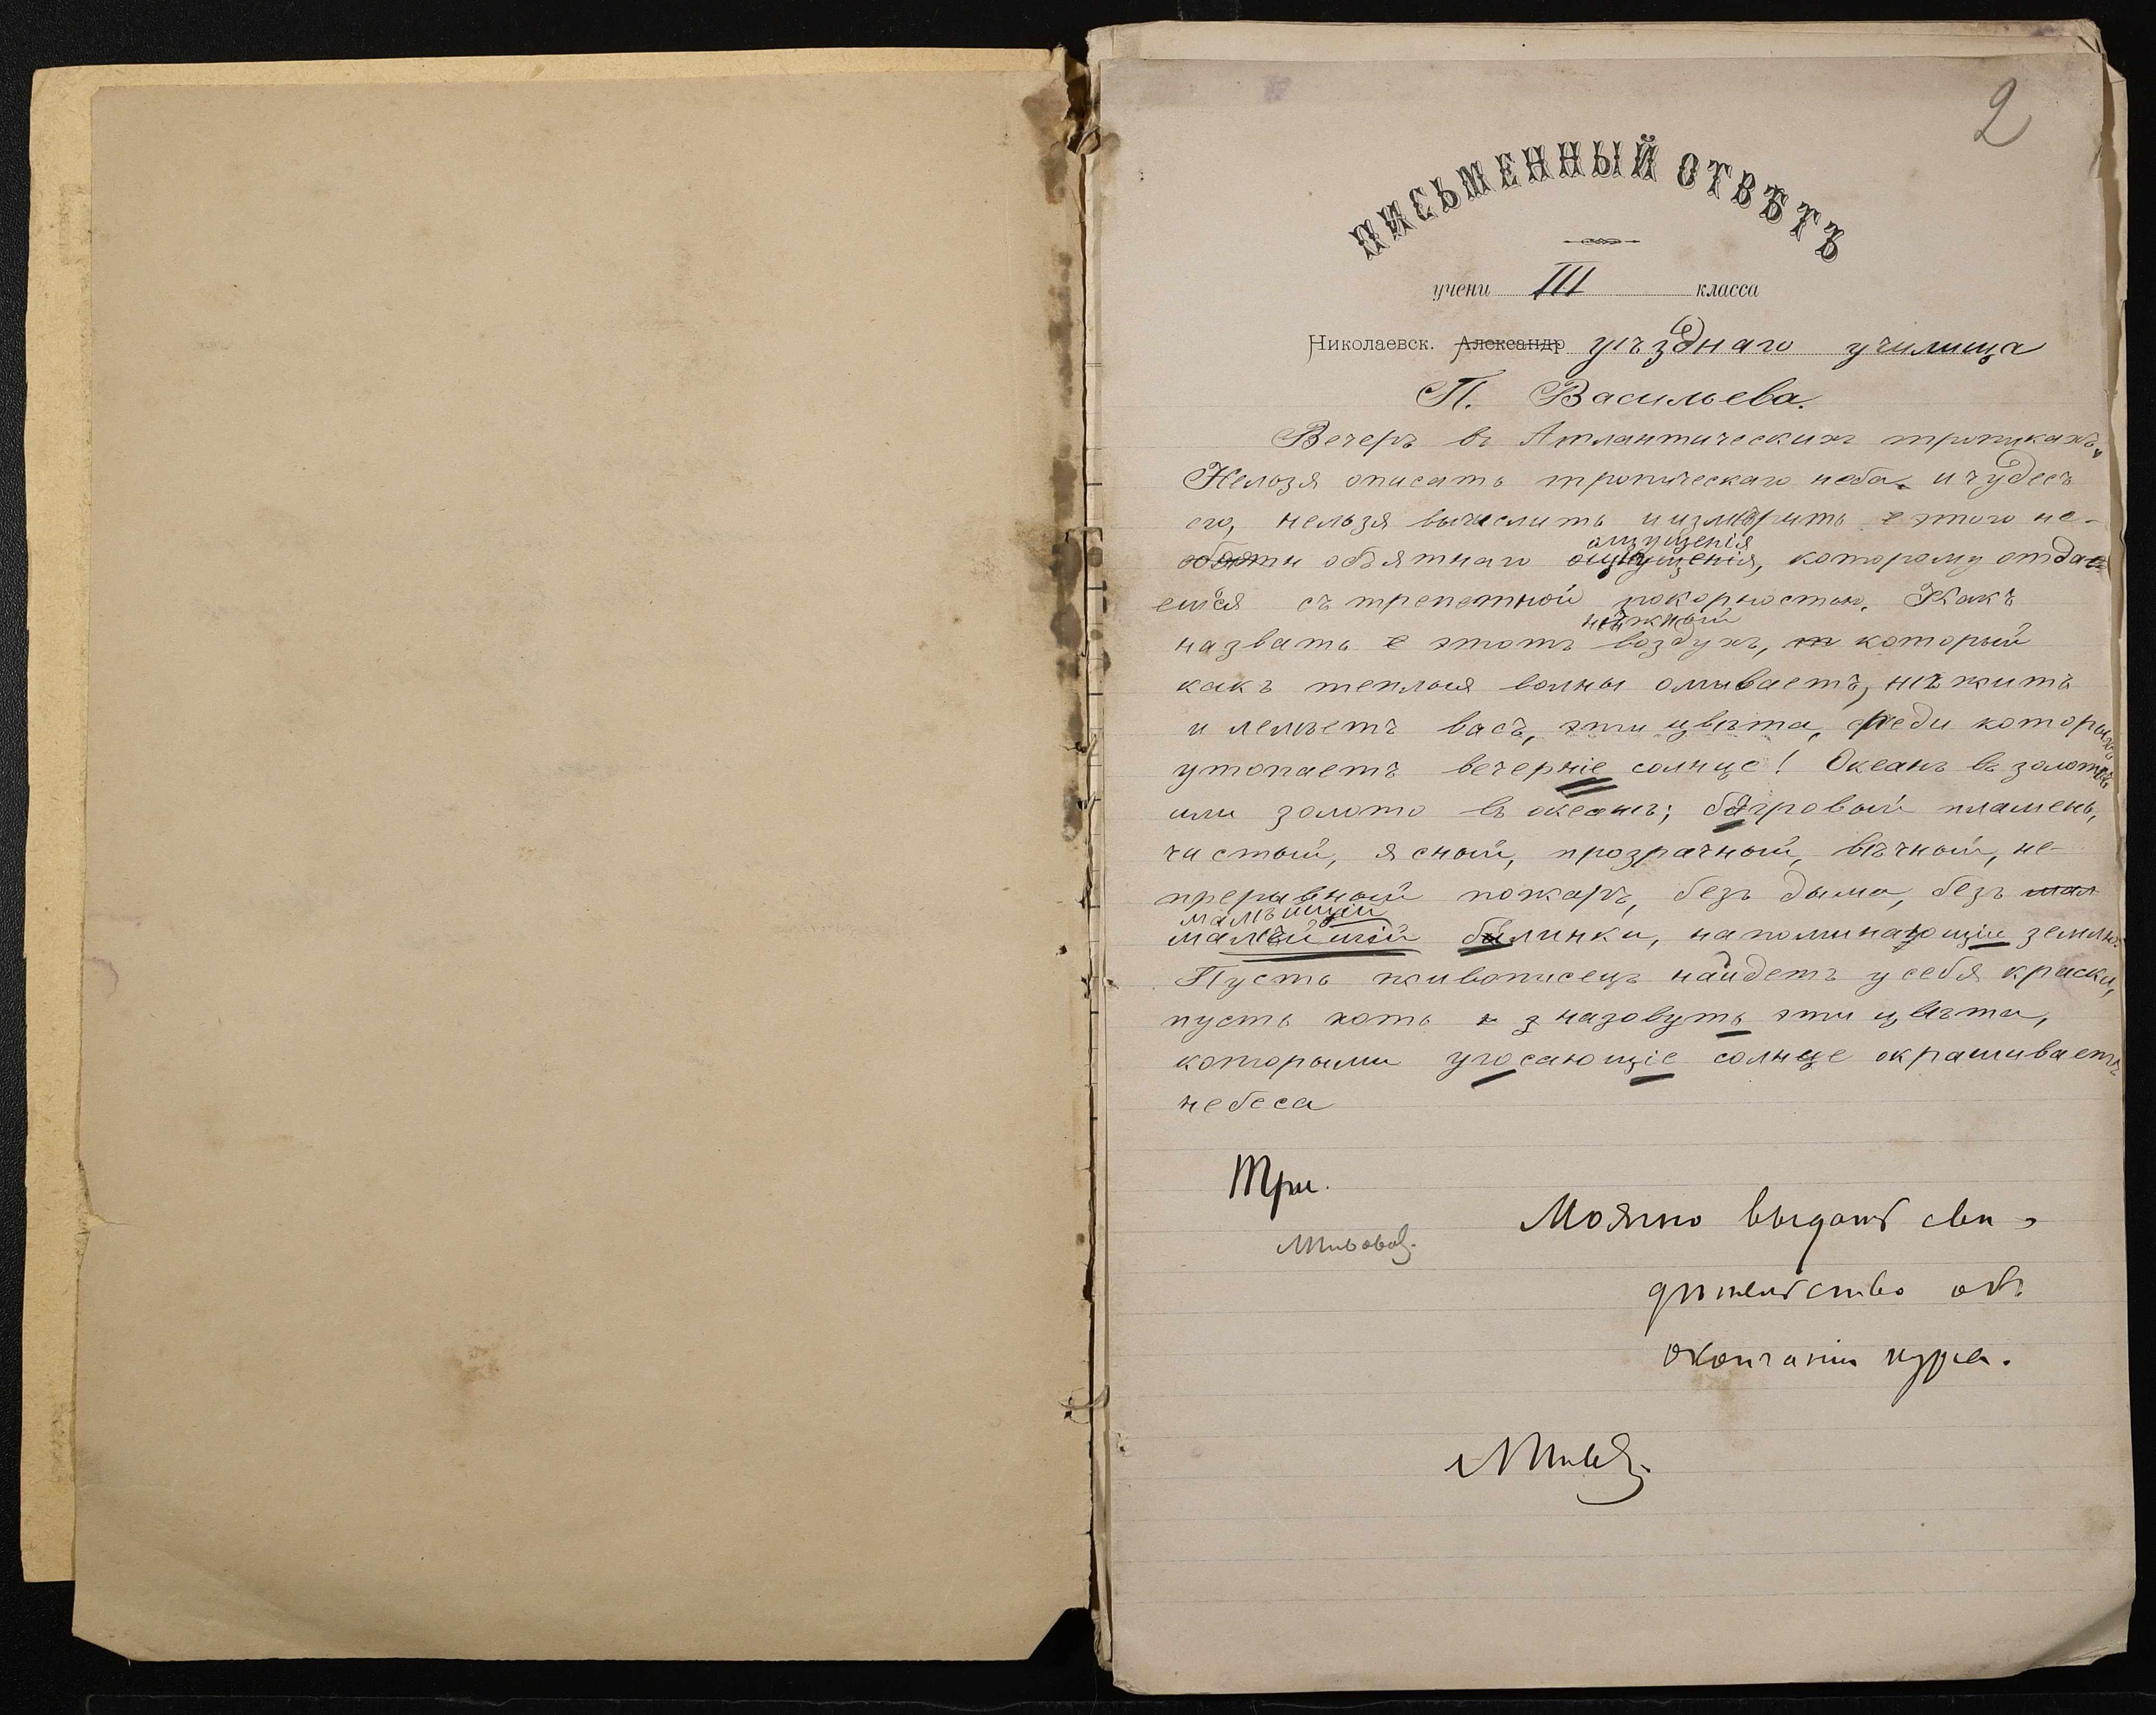 2
ПИСЬМЕННЫЙ ОТВѢТЪ
учени III класса
Николаевск. Александр уѣзднаго училища
П. Васильева.
Вечеръ въ Атлантическихъ тропикахъ.
Нельзя описать тропическаго неба и чудесъ
его, нельзя вычислить и измѣрить этого не-
объятнаго ощущенія
ощущенія, которому отдае
емся съ трепетной покорностью. Какъ
нѣжный
назвать этотъ воздухъ, который
какъ теплыя волны омываетъ, нѣжитъ
и лелѣетъ васъ, эти цвѣта, среди которыхъ
утопаетъ вечерніе солнце! Океанъ въ золотѣ
или золото въ океанѣ; багровый пламень,
чистый, ясный, прозрачный, вѣчный, не-
прерывный пожаръ, безъ дыма, безъ мал
малѣйшій
малѣйшій былинки, напоминающіе землю.
Пусть живописецъ найдетъ у себя краски,
пусть хоть назовутъ эти цвѣта,
которыми угосающіе солнце окрашиваетъ
небеса
Три.
Можно выдать сви-
дѣтельство объ
окончаніи курса.